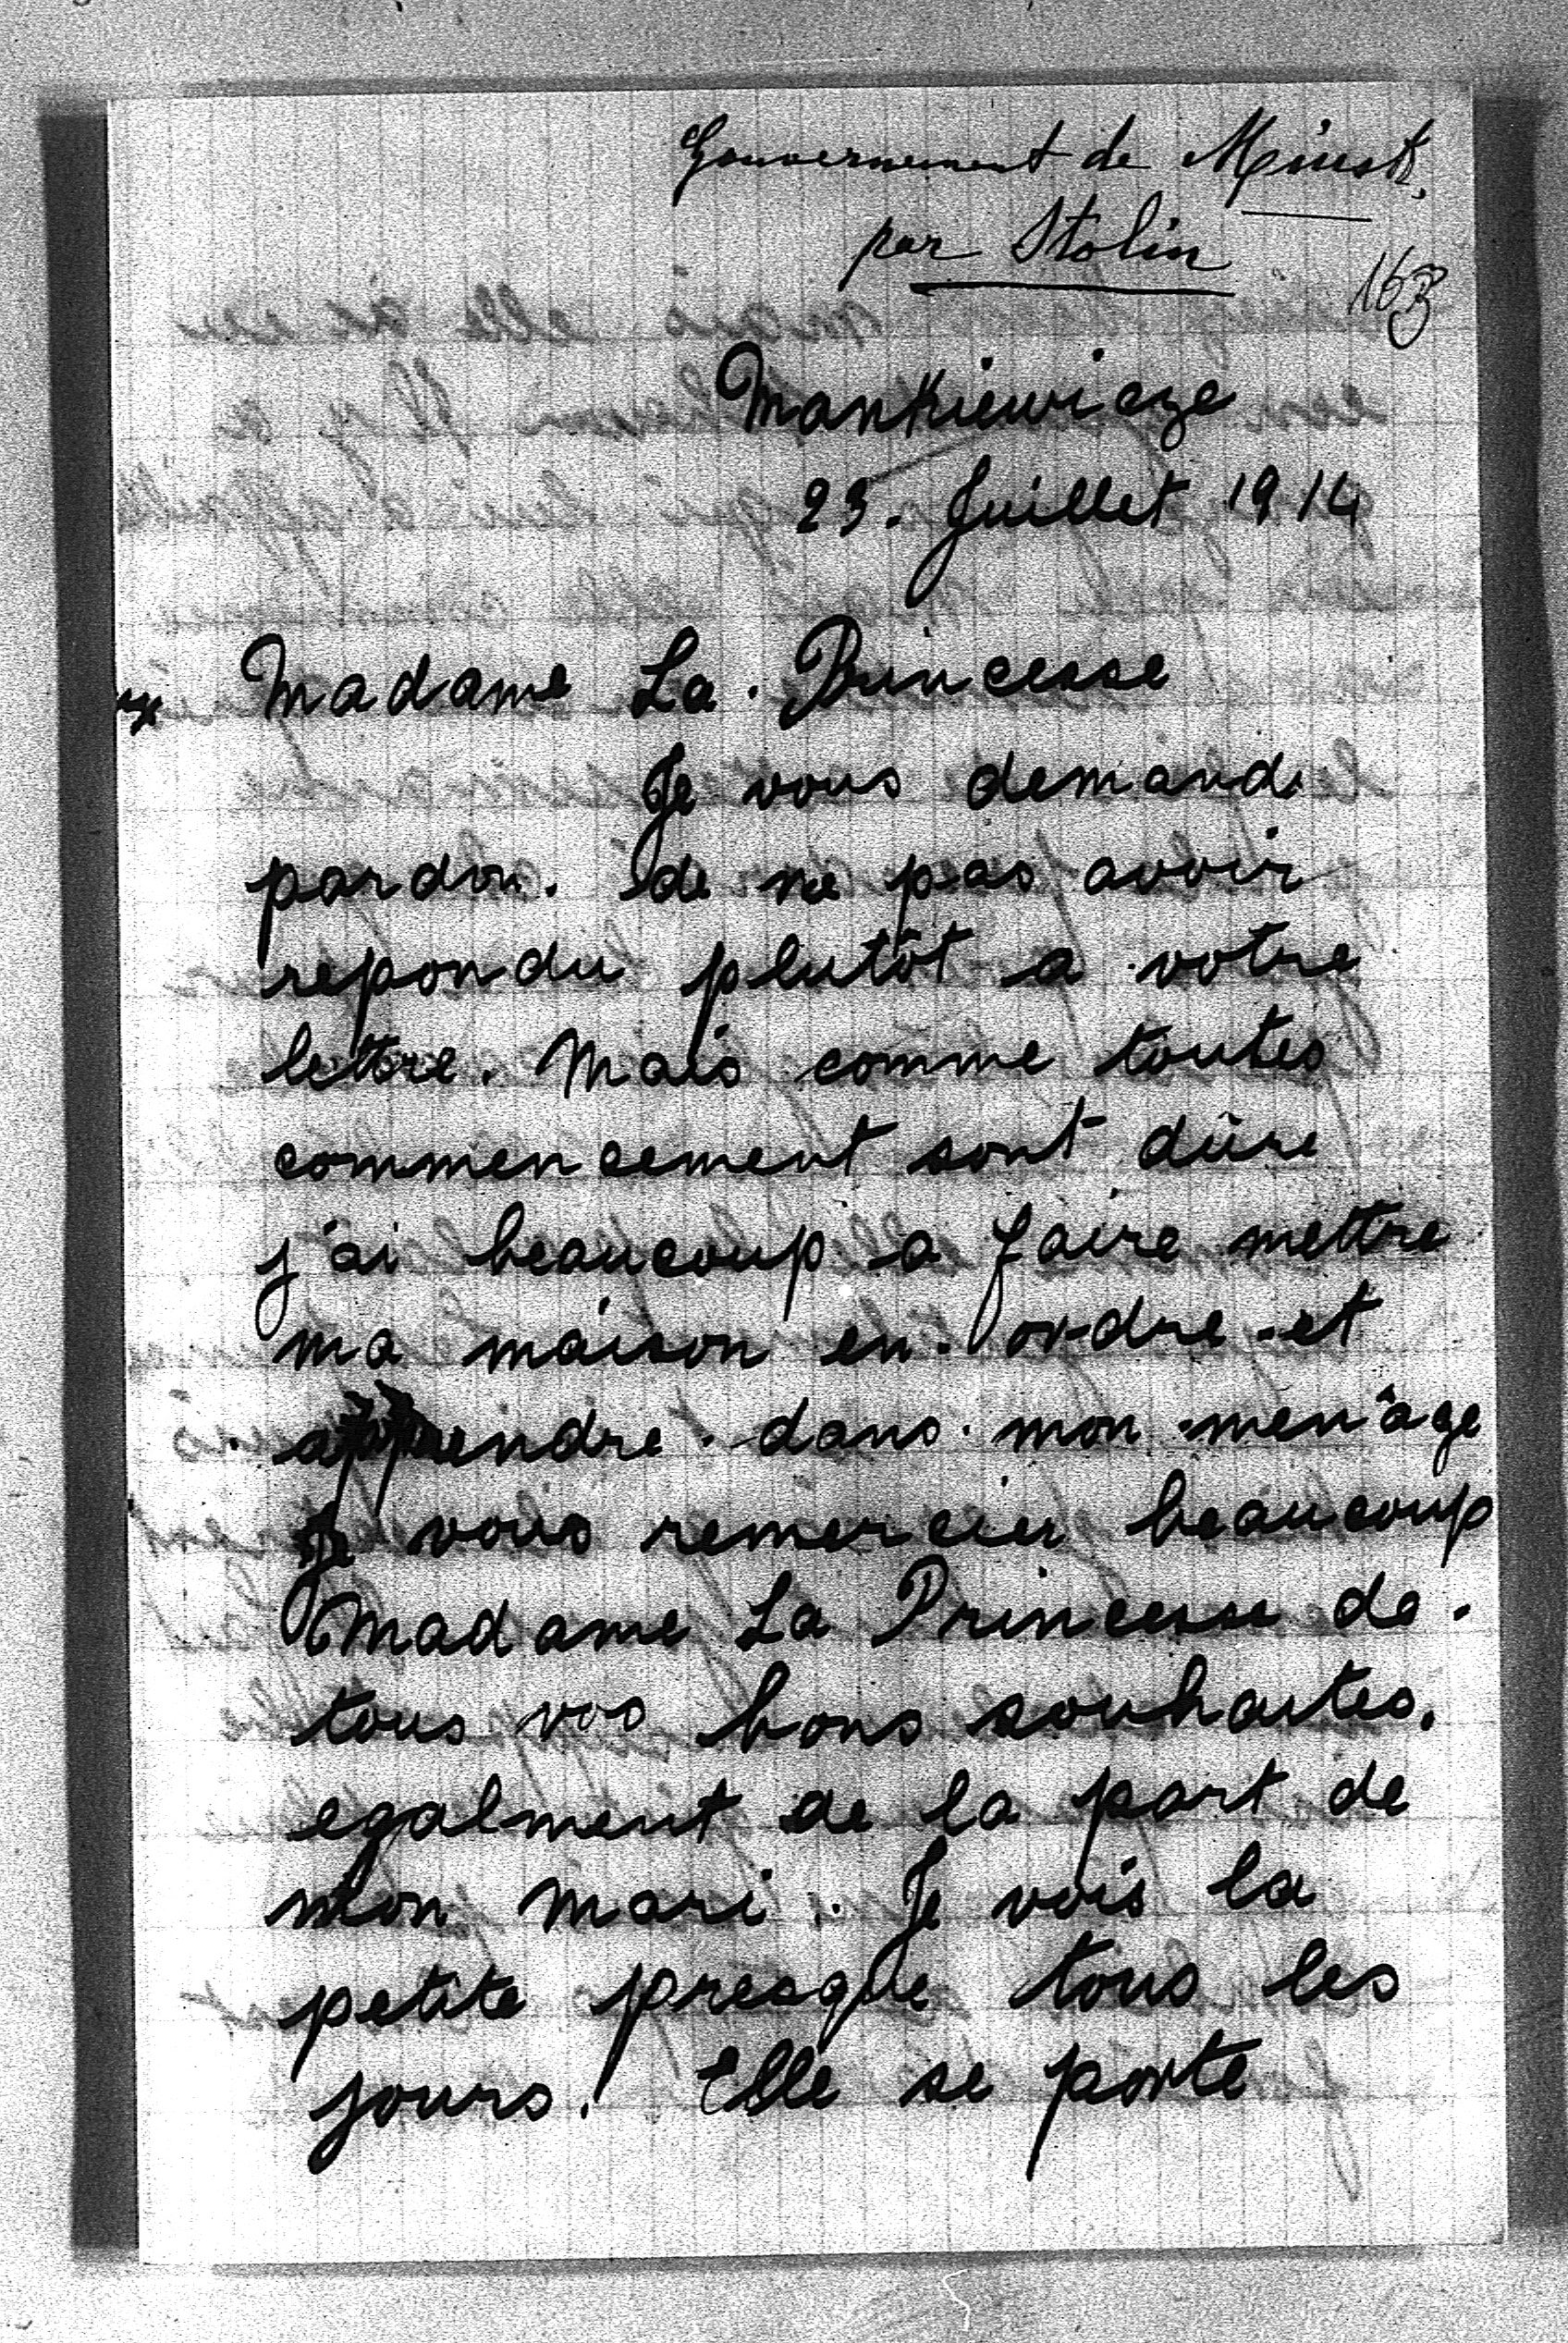 Gouvernement de Minsk.
par Stolin
163
Mankiewicze
23. Juillet 1914
Madame La Princesse
Je vous demande
pardon. de ne pas avoir
repondu plutôt a votre
lettre. Mais comme toutes
commencement sont dûre
j'ai beaucoup a faire mettre
ma maison en ordre et
apprendre dans mon menâge
Je vous remercier beaucoup
Madame La Princesse de
tous vos bons souhaites.
egalment de la part de
mon mari. Je vois la
petite presque tous les
jours. Elle se porte